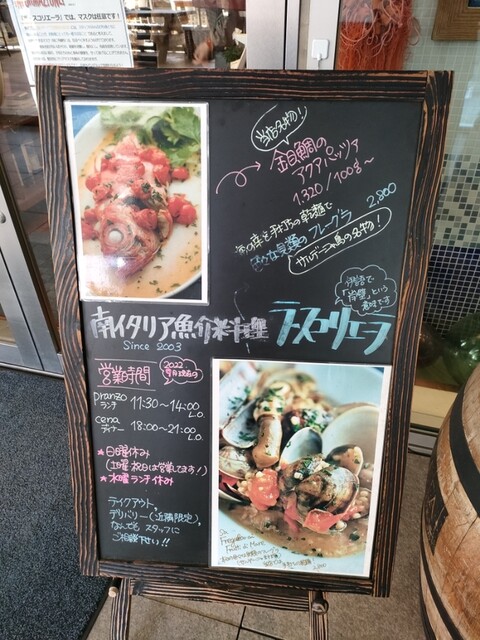 スコリエーラ)では、マスクは任意です!
当店名物!
金目鯛の
アクアパッツァ
1,320/100g〜
2,800
貝類のフレーグラ
サルデーニャ島の名物!
伊語で
「岸壁」という
意味です
南イタリア魚介料理 ラスコリエラ
Since 2003
営業時間
2022
pranzo
ランチ 11:30〜14:00
L.O.
cena
ディナー 18:00〜21:00
L.O.
★日曜休み
(土曜祝日は営業してます!)
★水曜ランチ休み
テイクアウト、
デリバリー(近隣限定)、
なんでもスタッフに
ご相談下さい!!
Frutti di Mare